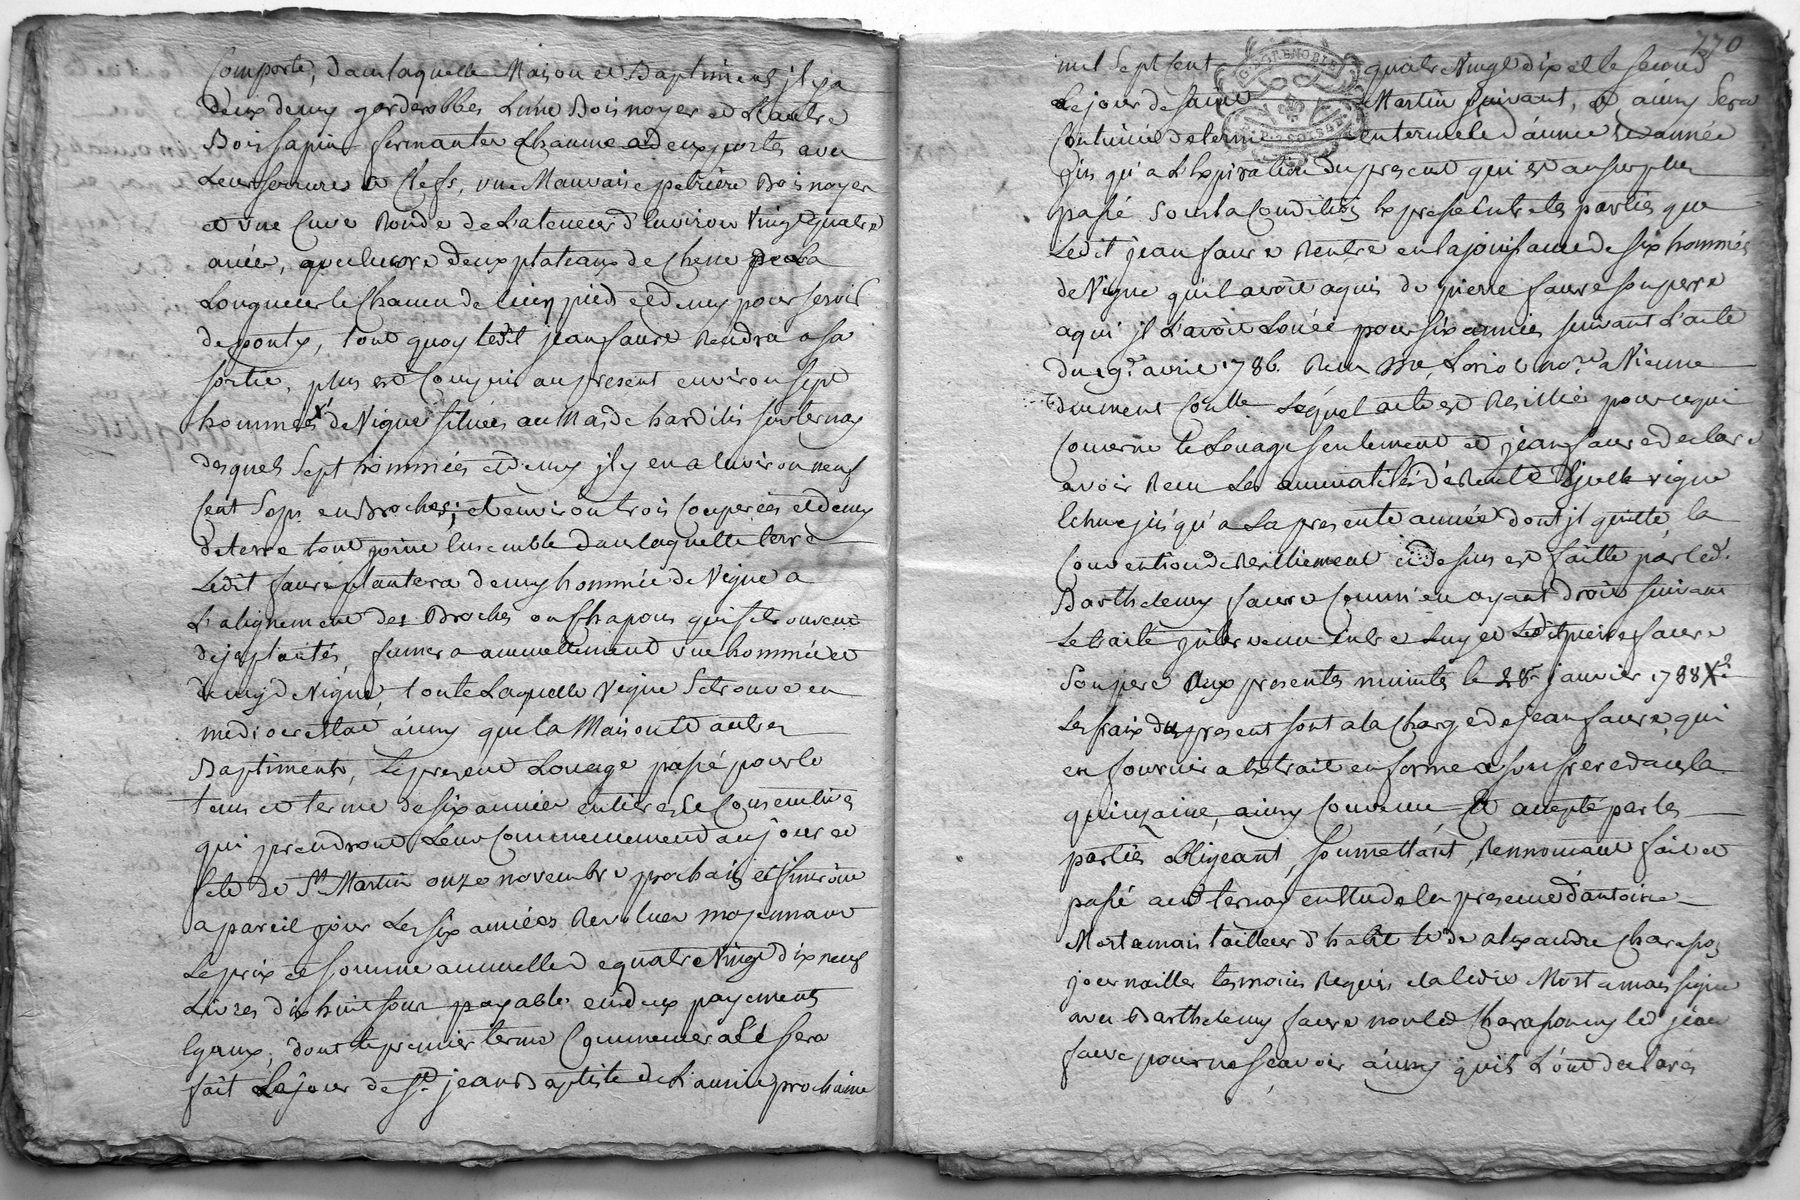 Comporte, dans laquelle Maison et Baptiments il y a
deux demy garderobbes L'une Bois noyer et L'autre
Bois sapin fermante Chacune a deux portes avec
Leurs serrures et Clefs, une Mauvaise petrière Bois noyer
et une Cuve Ronde de La teneur d'Environ Vingt quatre
anées, avec Encore deux plateaux de Chene de La
Longueur le Chacun de cinq pieds et demy pour servir
de ponts, tout quoy ledit jean faure Rendra a sa
sortie, plus est Compris au present environ sept
hommées de Vigne situées au Mas de hardilis sur ternay
desquels Sept hommées et demy il y en a Environ neuf
Cent Seps en Broches; et environ trois Couperées et demy
de terre tout joint Ensemble dans laquelle terre
Ledit faure plantera demy hommée de Vigne a
L'alignement des Broches ou Chapons qui se trouvent
deja plantés, fumera annuellement une hommée et
demy de Vigne, toute Laquelle Vigne Se trouve en
mediocre Etat ainsy que la Maison et autres
Baptiments, Le present Louage passé pour le
tems et terme de six années entieres et Consecutives
qui prendront Leur Commencement au jour et
fete de St Martin onze novembre prochain et finiront
a pareil jour Les six années Revolues moyennant
Le prix et somme annuelle de quatre Vingt dix neuf
Livres dix huit sous payable en deux payements
Egaux, dont le premier terme Commencera Et sera
fait Le jour de St jean Baptiste de L'année prochaine
770
mil Sept Cent quatre Vingt dix et le second
Le jour de saint Martin suivant, et ainsy Sera
Continué de terme en terme et d'année en année
jusqu'a L'Expiration du present qui est au surplus
passé Sous la Condition Expresse Entre les parties que
Ledit jean faure Rentre en la jouissance de six hommées
de Vigne qu'il avoit aquis de pierre faure son pere
a qui il L'avoit Louée pour six années suivant L'acte
du 9e avril 1786 Reçu Me Loriol nore a Vienne
duement Conllé Lequel acte est Resillié pour ce qui
Concerne le Louage seulement et jean faure declare
avoir Recu Les annuités de Rente d'jcelle vigne
Echue jusqu'a La presente année dont il quitte, la
Convention de Resiliement ci dessus est faitte par led.
Barthelemy faure Comm'en ayant droit suivant
Le traité intervenu entre Luy et Ledit pierre faure
Son pere Aux presentes minutes le 28e janvier 1788
Les fraix du present sont a la Charge de jean faure, qui
en fournira Extrait en forme a son frere dans la
quinzaine, ainsy Convenu Et accepté par les
parties obligeant, soumettant, Rennonçant fait et
passé audt ternay en Etude En presence d'antoine
Mortamais tailleur d'habit et de alexandre Charasoz
journaillier temoins Requis et a ledit Mortamais signé
avec Barthelemy faure non led Charason ny led jean
faure pour ne sçavoir ainsy qu'ils L'ont declarés